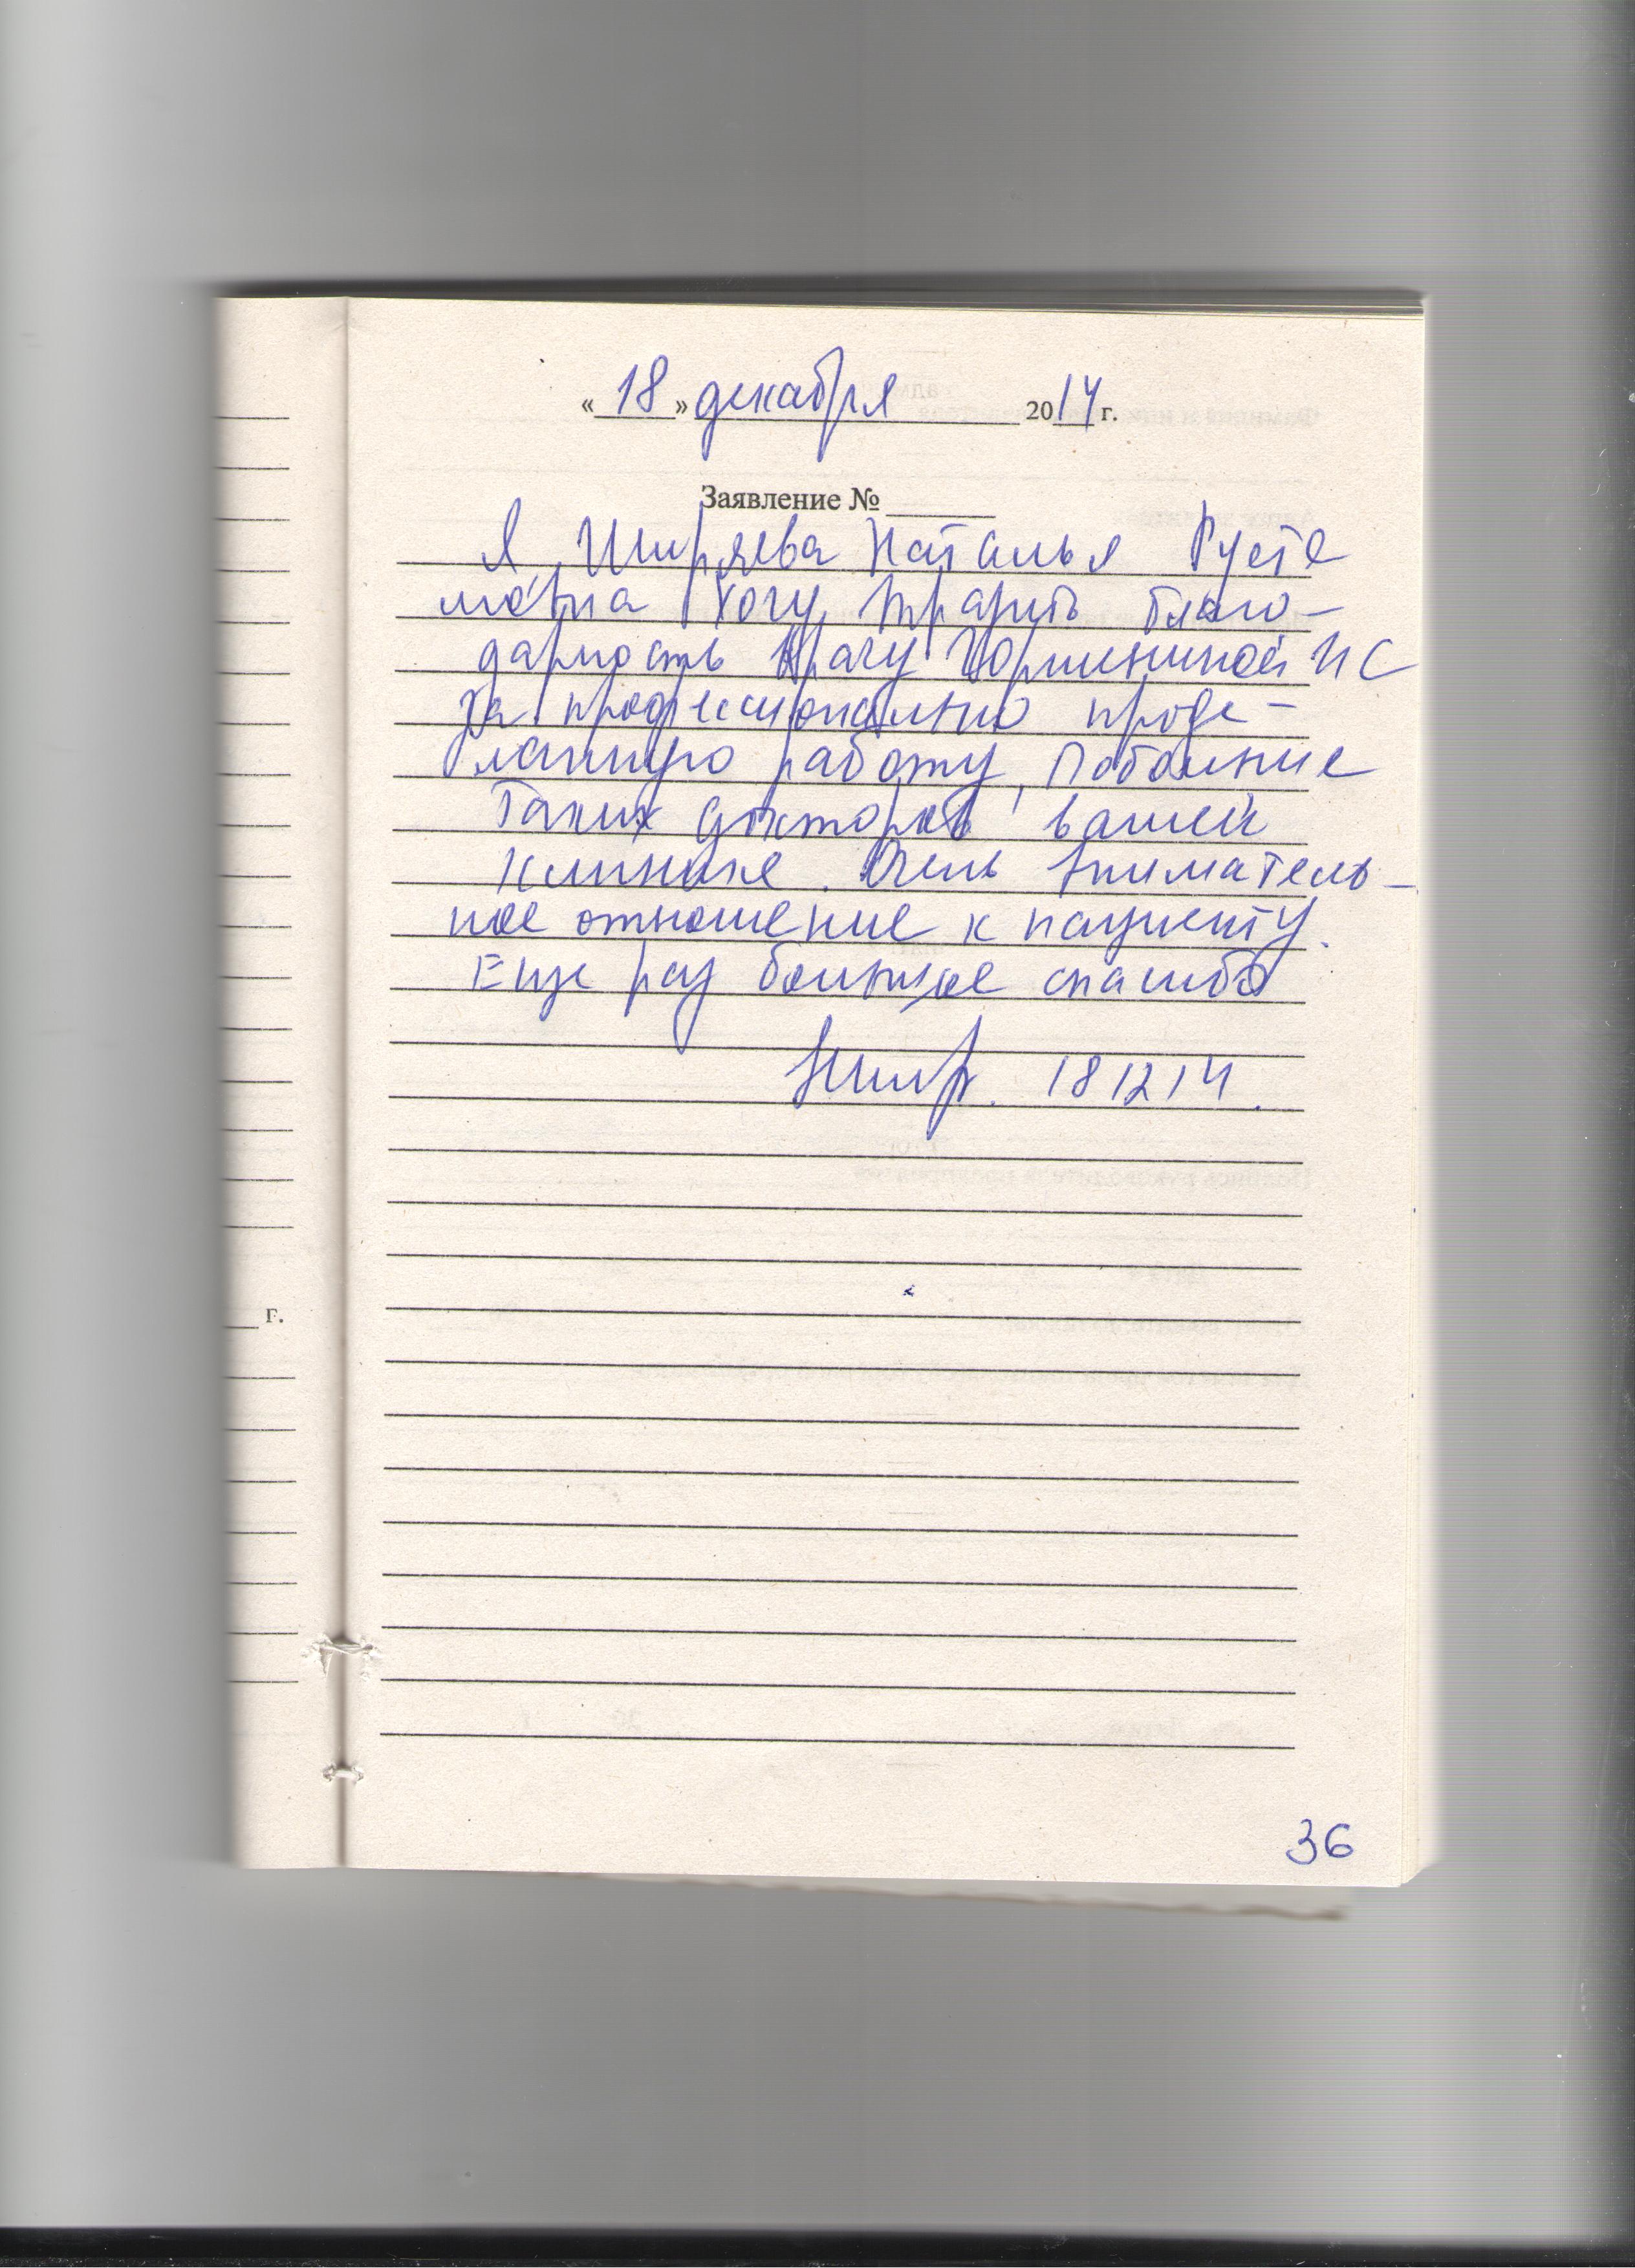 « 18 » декабря 2014 г.
Заявление №
Я, Ширяева Наталья Русте
мовна хочу выразить благо-
дарность врачу ИС
за профессионально проде-
ланную работу, побольше
Таких докторов вашей
клинике. Очень вниматель-
ное отношение к пациенту.
Еще раз большое спасибо
181214.
г.
36